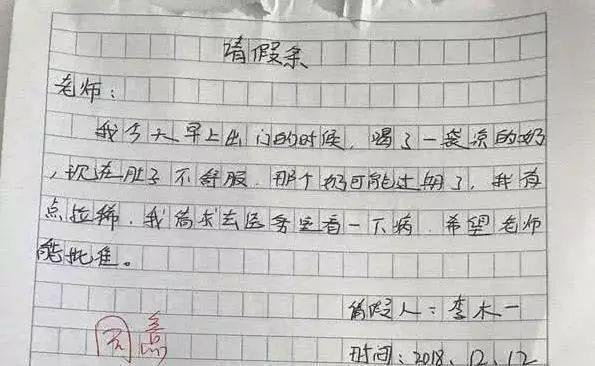 请假条
老师：
我今天早上出门的时候，喝了一袋凉的奶
，现在肚子不舒服．那个奶可能过期了，我有
点拉稀．我请求去医务室看一下病．希望老师
能批准。
请假人：李木一
时间：2018．12．12
意